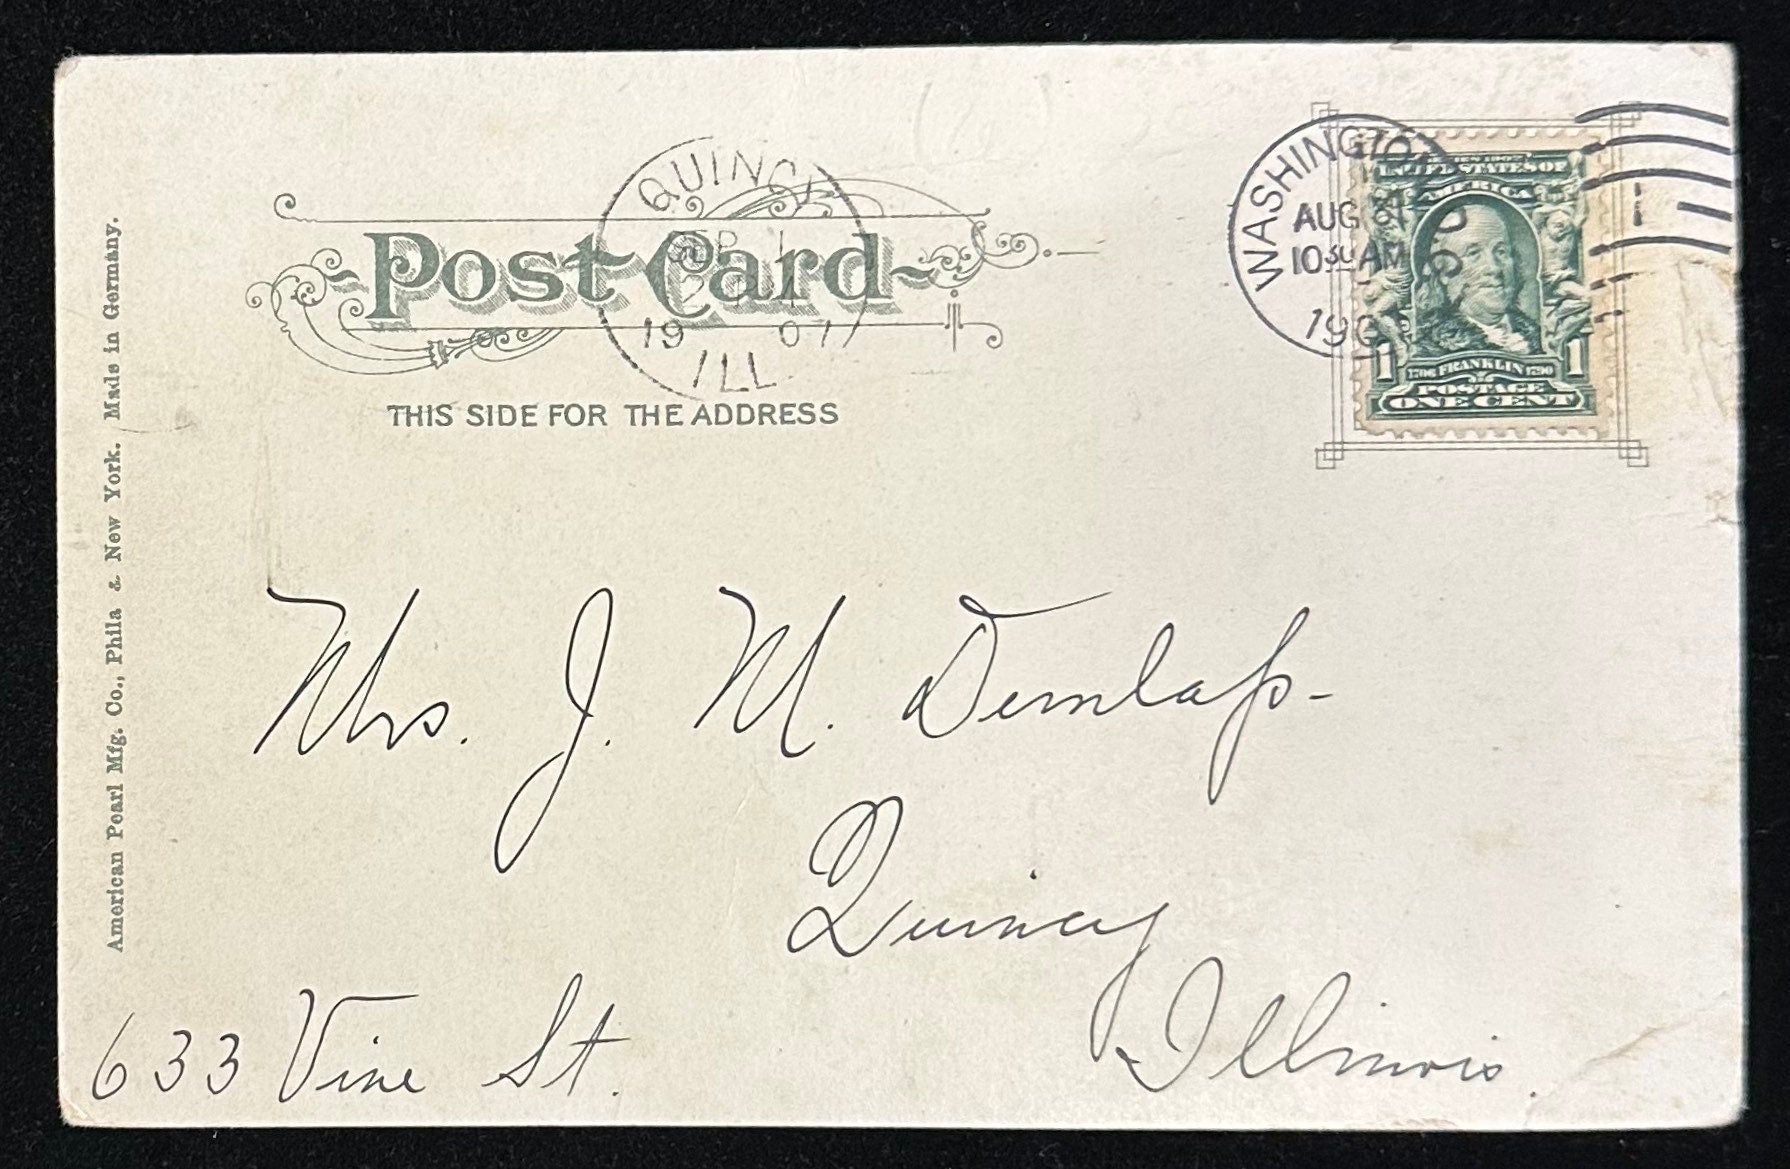 American Pearl Mfg. Co., Phila & New York. Made in Germany.
Post Card
THIS SIDE FOR THE ADDRESS
QUINCY
SEP 1
19 07
ILL.
WASHINGTON, D.C.
AUG
10 30 AM
1907
1
SERIES 1902
UNITED STATES OF
AMERICA
1706 FRANKLIN 1790
1 1
POSTAGE
ONE CENT
Mrs. J. M. Dunlap-
Quincy
Illinois.
633 Vine St.